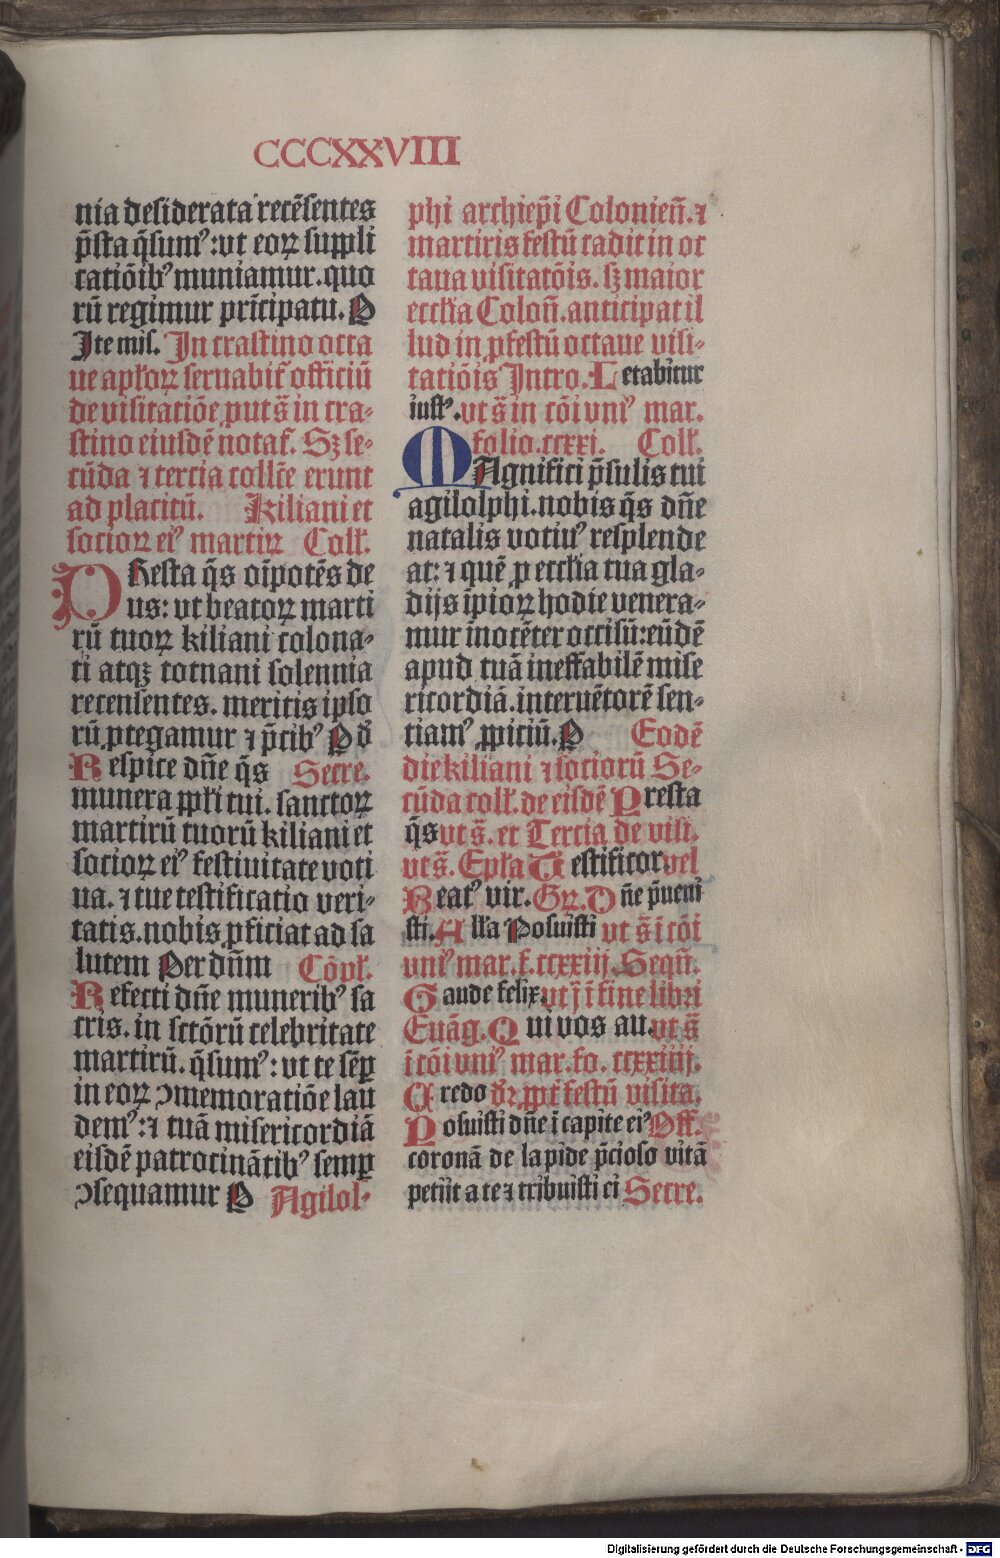 CCCXXVIII
nia desiderata recēsentes
p̄sta q̄sumꝰ: vt eoꝝ suppli
catiōibꝰ muniamur. quo
rū regimur prīcipatu. P
Ite mis. In crastino octa
ue apl'oꝝ seruabit᷑ officiū
de visitatiōe, put s̄ in cra-
stino eiusdē notat᷑. Sꝫ se-
cūda ⁊ tercia collc̄e erunt
ad placitū. Kiliani et
socioꝝ eiꝰ martiꝝ Coll'.
PResta q̄s oīpotēs de
us: vt beatoꝝ marti
rū tuoꝝ kiliani colona-
ti atqꝫ totnani solennia
recensentes. meritis ipso
rū ꝓtegamur ⁊ p̄cibꝰ P d'
Respice dn̄e q̄s Secre.
munera ppl'i tui. sanctoꝝ
martirū tuorū kiliani et
socioꝝ eiꝰ festiuitate voti
ua. ⁊ tue testificatio veri-
tatis. nobis ꝓficiat ad sa
lutem Per dn̄m Cōpl'.
Refecti dn̄e muneribꝰ sa
cris. in sctōrū celebritate
martirū. q̄sumꝰ: vt te sēꝑ
in eoꝝ ꝯmemoratiōe lau
demꝰ: ⁊ tuā misericordiā
eisdē patrocinātibꝰ semꝑ
ꝯsequamur P Agilol-
phi archiep̄i Colonien̄. ⁊
martiris festū cadit in oc
taua visitatōis. sꝫ maior
eccl'ia Colon̄. anticipat il
lud in ꝓfestū octaue visi-
tatiōis Intro. Letabitur
iustꝰ. vt s̄ in cōi vniꝰ mar.
folio. ccxxi. Coll'.
MAgnifici p̄sulis tui
agilolphi. nobis q̄s dn̄e
natalis votiuꝰ resplende
at: ⁊ quē ꝓ eccl'ia tua gla-
dijs īpioꝝ hodie venera-
mur īnocēter occisū: eūdē
apud tuā ineffabilē mise
ricordiā. interuētorē sen-
tiamꝰ ꝓpiciū. P Eodē
die kiliani ⁊ sociorū Se-
cūda coll'. de eisdē Presta
q̄s vt s̄. et Tercia de visi.
vt s̄. Epl'a Testificor. vel
Beatꝰ vir. Gꝝ. Dn̄e p̄ueni
sti. All'a Posuisti vt s̄ ī cōi
vniꝰ mar. f. ccxxiij. Seqn̄.
Gaude felix. vt j̄ ī fine libri
Euāg. Qui vos au. vt s̄
ī cōi vniꝰ mar. fo. ccxxiiij.
Credo dr̄. ꝓpt᷑ festū visita.
Posuisti dn̄e ī capite eiꝰ Off.
coronā de lapide p̄cioso vitā
petijt a te ⁊ tribuisti ei Secre.
Digitalisierung gefördert durch die Deutsche Forschungsgemeinschaft - DFG